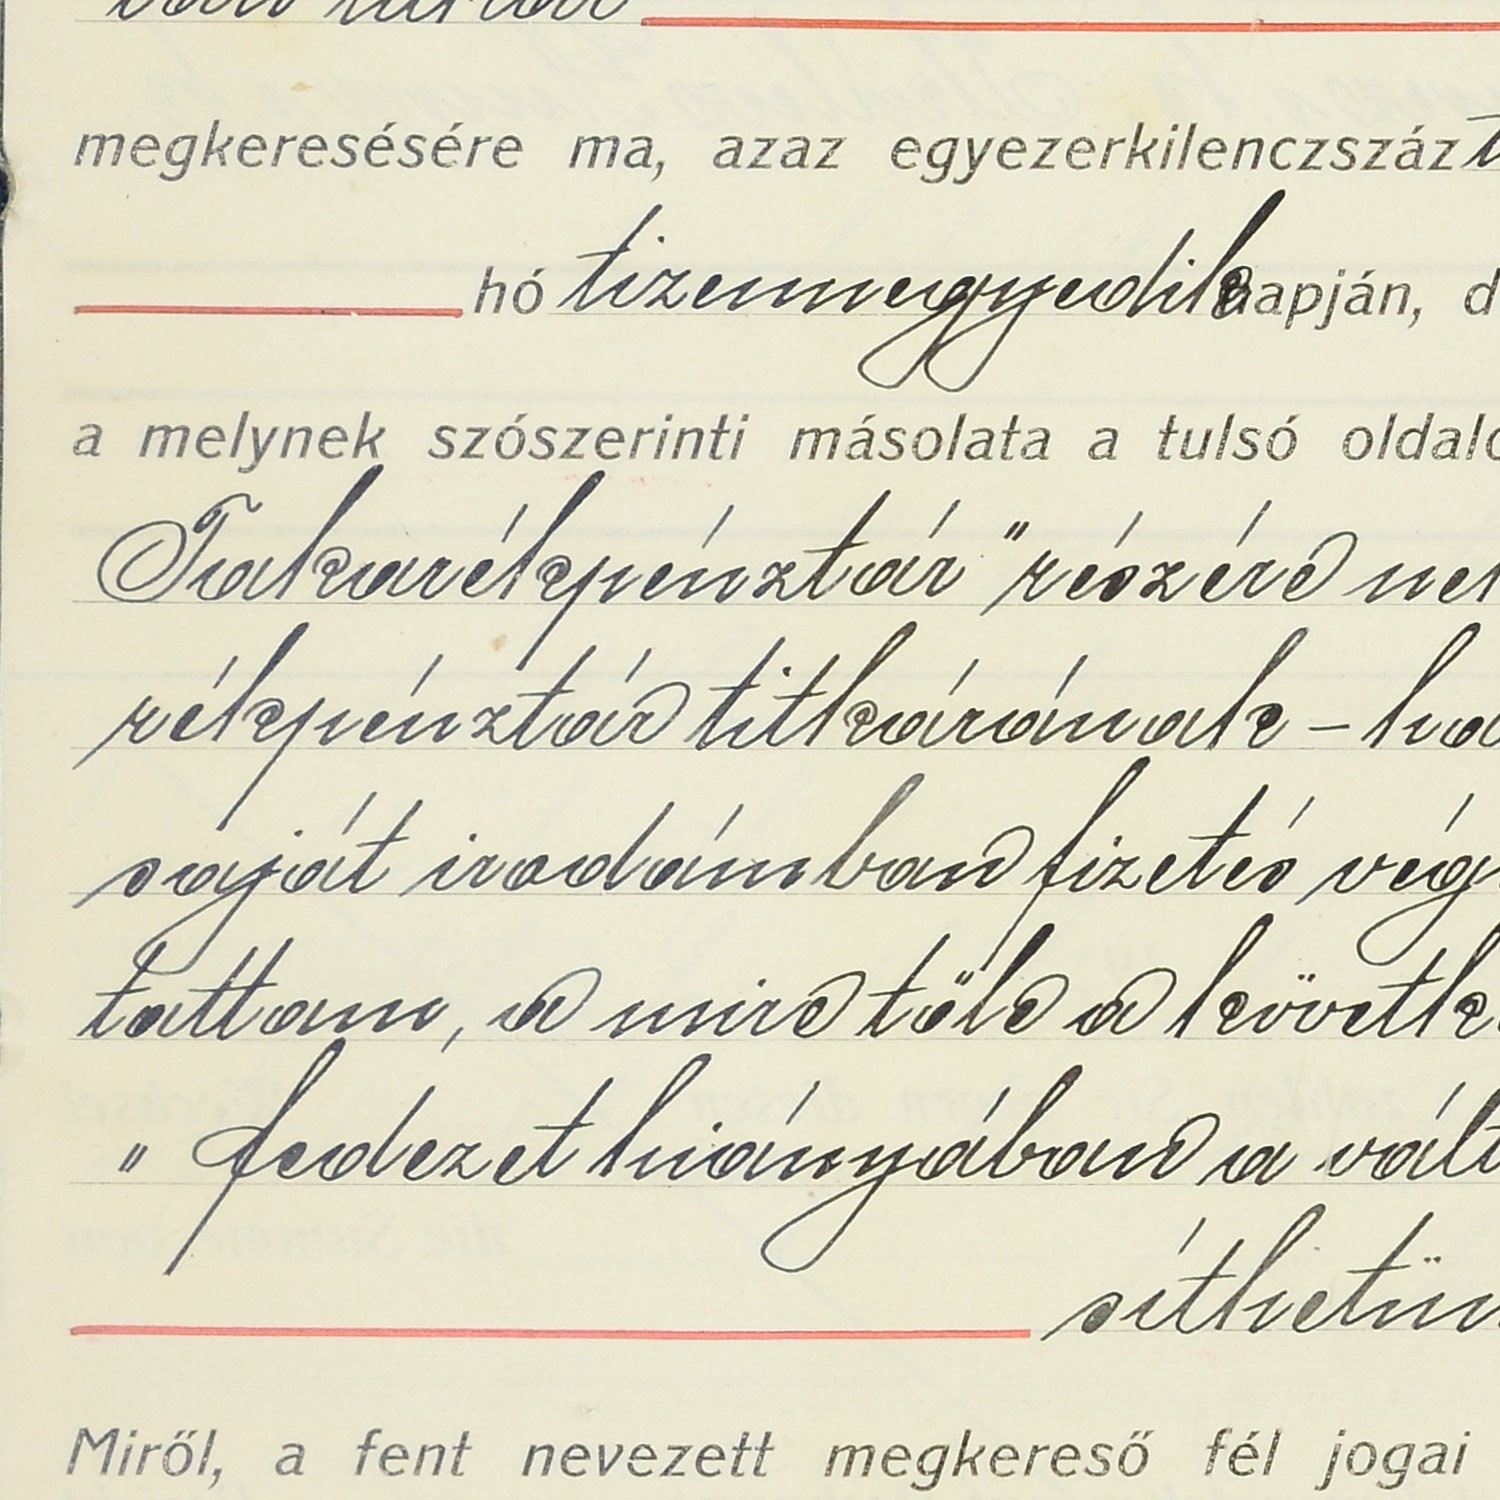 megkeresésére ma, azaz egyezerkilenczszáz
hó tizennegyedik napján, d
a melynek szószerinti másolata a tulsó oldalo
Takarékpénztár" részére
rékpénztár titkárának – ha
saját irodámban fizetés vég
tattam, a mire tőle a követk
" fedezet hiányában a vált
síthetün
Miről, a fent nevezett megkereső fél jogai